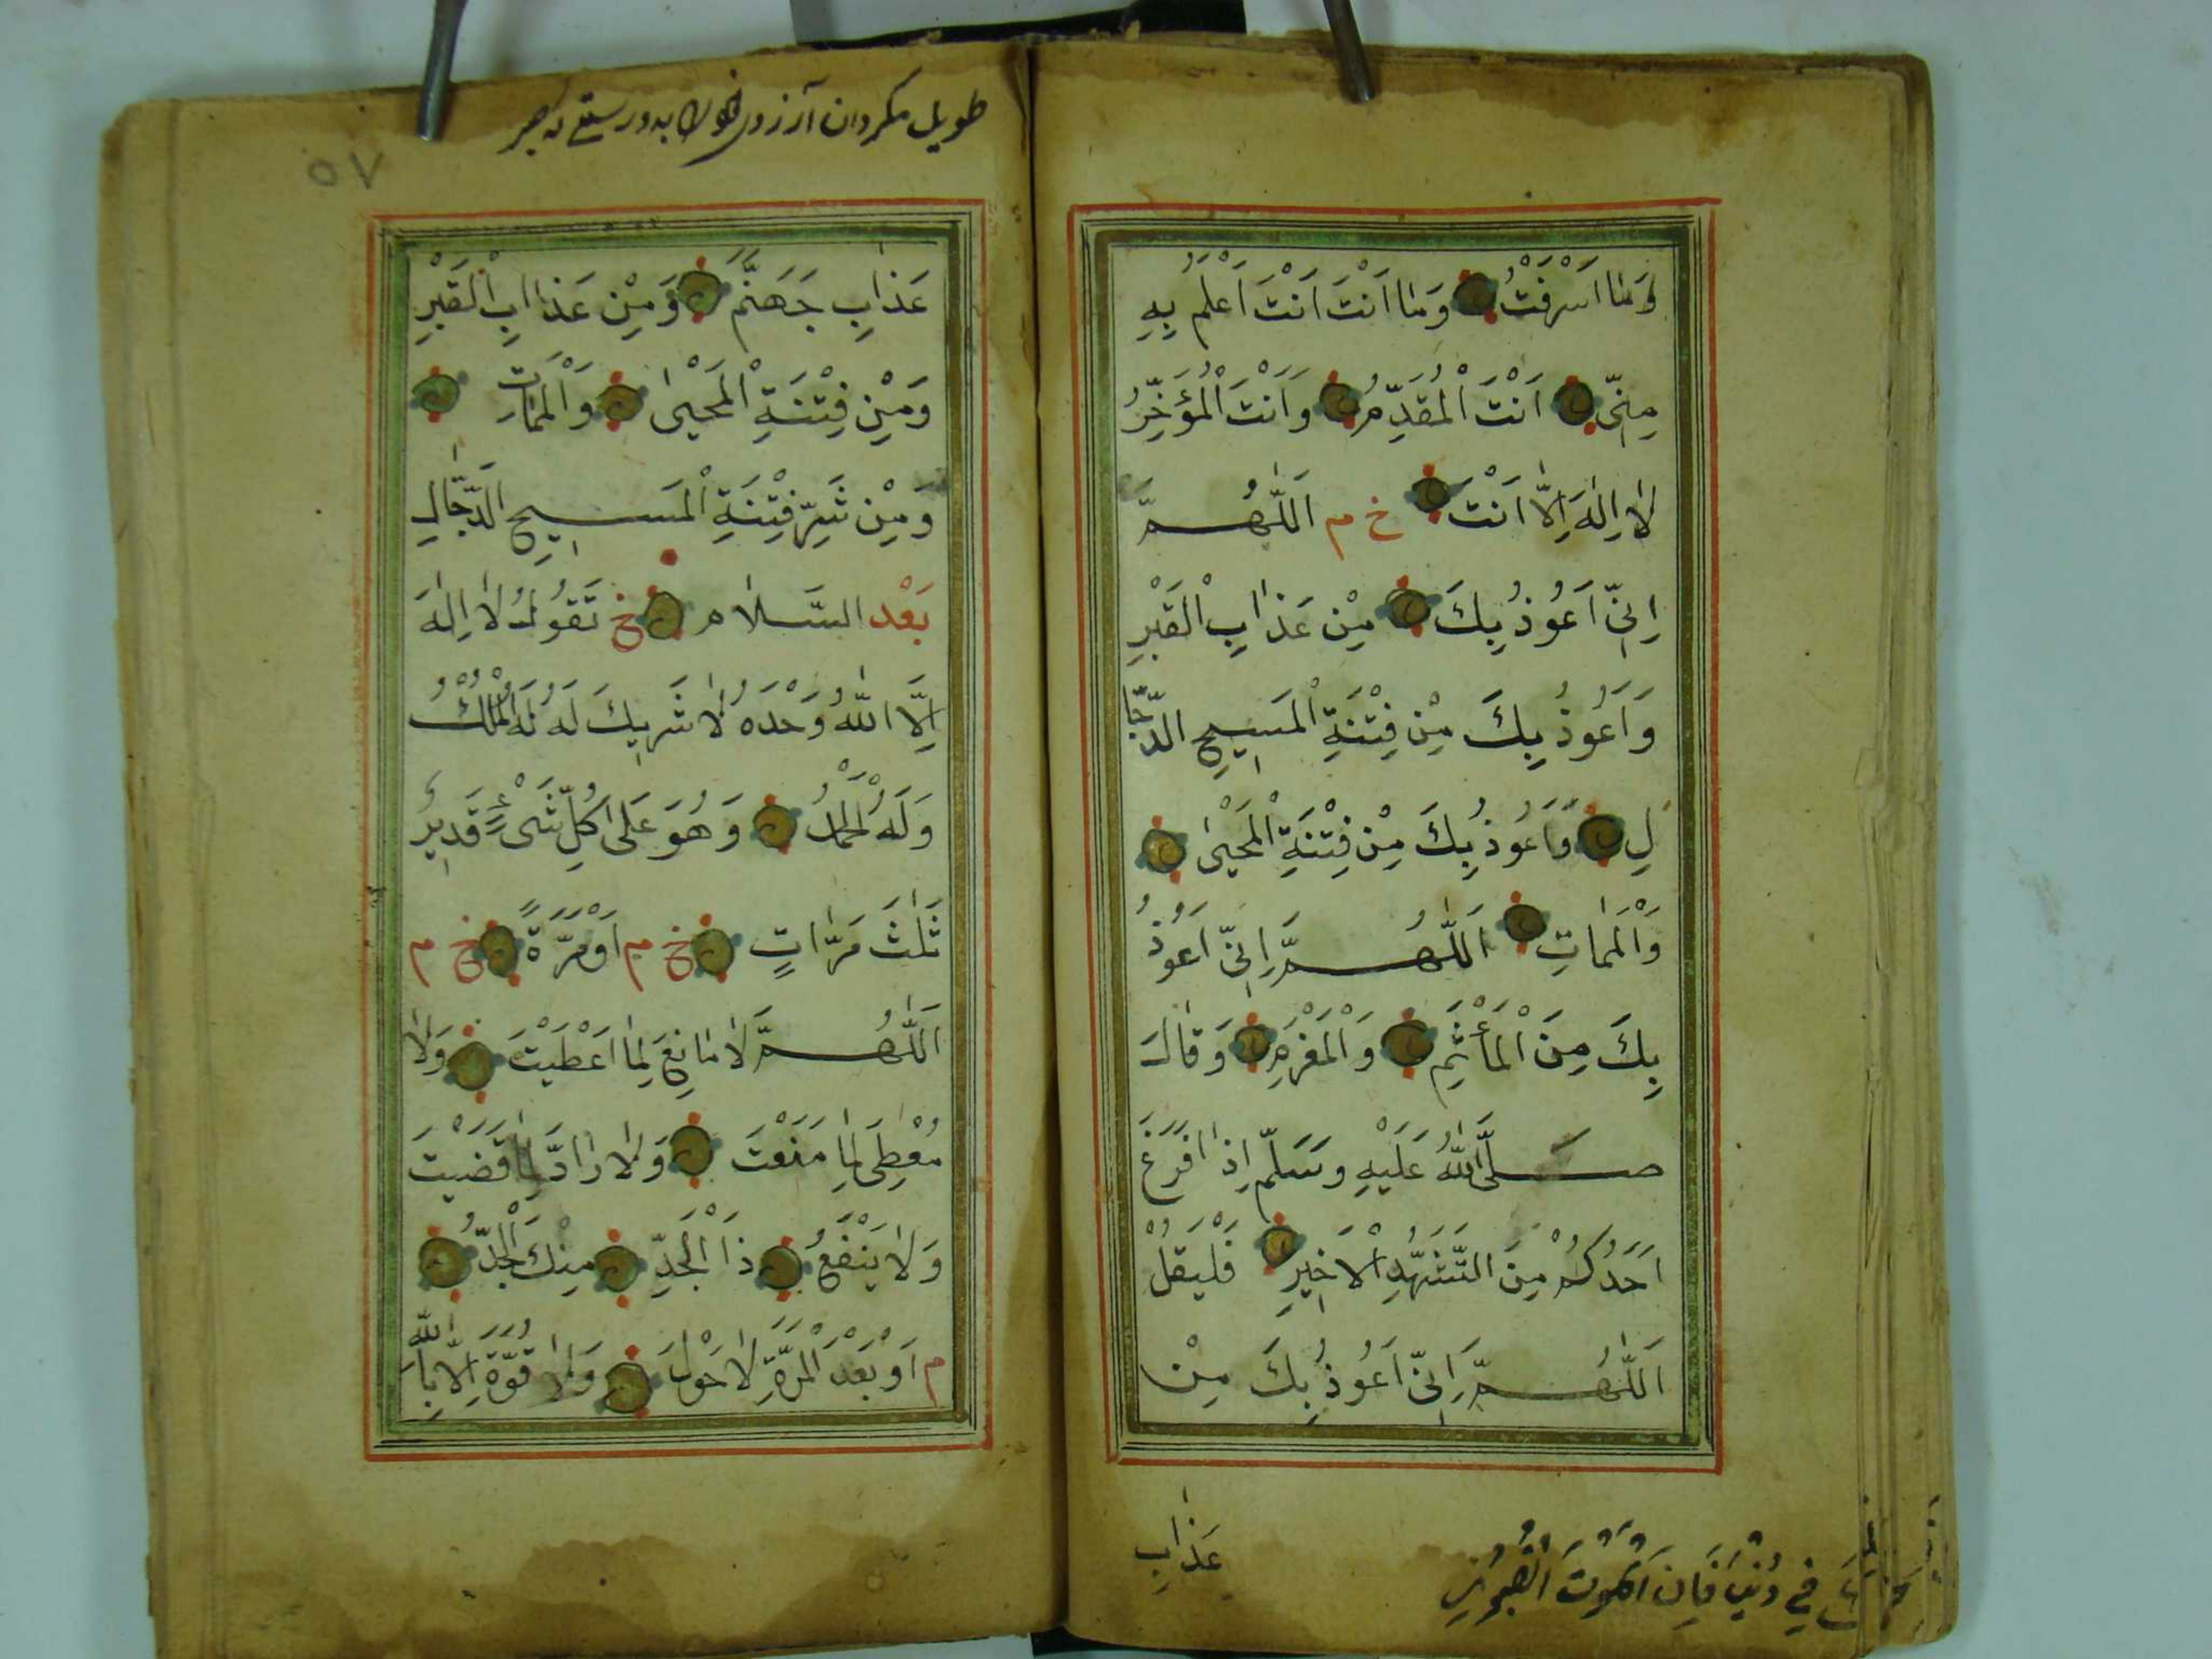 وَمَا اَسْرَفْتُ وَمَا اَنْتَ اَنْتَ اَعْلَمُ بِهِ
مِنّىِ اَنْتَ الْمُقَدِّمُ وَاَنْتَ الْمُؤَخِّرُ
لَا اِلٰهَ اِلَّا اَنْتَ خ م اَللّٰهُمَّ
اِنّىِ اَعُوذُ بِكَ مِنْ عَذَابِ الْقَبْرِ
وَاَعُوذُ بِكَ مِنْ فِتْنَةِ الْمَسِيحِ الدَّجَّا
لِ وَاَعُوذُ بِكَ مِنْ فِتْنَةِ الْمَحْيٰى
وَالْمَمَاتِ اَللّٰهُمَّ اِنّىِ اَعُوذُ
بِكَ مِنَ الْمَأْثَمِ وَالْمَغْرَمِ وَقَالَ
صَلَّى اللّٰهُ عَلَيْهِ وَسَلَّمَ اِذَا فَرَغَ
اَحَدُكُمْ مِنَ التَّشَهُّدِ الْاَخِيرِ فَلْيَقُلْ
اَللّٰهُمَّ اِنّىِ اَعُوذُ بِكَ مِنْ
عَذَابِ
فِي دُنْيَا فَاِنَ الْمَوْتَ
طويل مكردان آرزوى
٥٧
عَذَابِ جَهَنَّمَ وَمِنْ عَذَابِ الْقَبْرِ
وَمِنْ فِتْنَةِ الْمَحْيٰى وَالْمَمَاتِ
وَمِنْ شَرِّ فِتْنَةِ الْمَسِيحِ الدَّجَّالِ
بَعْد السَّلَام خ تَقُولُ لَا اِلٰهَ
اِلَّا اللّٰهُ وَحْدَهُ لَا شَرِيكَ لَهُ لَهُ الْمُلْكُ
وَلَهُ الْحَمْدُ وَهُوَ عَلٰى كُلِّ شَىْءٍ قَدِيرٌ
ثَلٰثَ مَرَّاتٍ خ م اَوْ مَرَّةً خ م
اَللّٰهُمَّ لَا مَانِعَ لِمَا اَعْطَيْتَ وَلَا
مُعْطِىَ لِمَا مَنَعْتَ وَلَا رَادَّ لِمَا قَضَيْتَ
وَلَا يَنْفَعُ ذَا الْجَدِّ مِنْكَ الْجَدُّ
م اَوْ بَعْدَ الْمَرَّةِ لَا حَوْلَ وَلَا قُوَّةَ اِلَّا بِاللّٰهِ